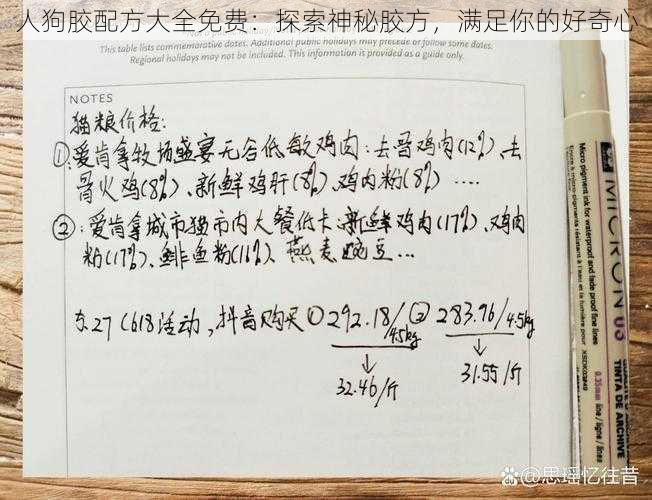 人狗胶配方大全免费：探索神秘胶方，满足你的好奇心
This table lists commemorative dates. Additional public holidays may precede or follow some dates.
Regional holidays may not be included. This information is provided as a guide only.
NOTES
猫粮价格:
①爱肯拿牧场盛宴无谷低敏鸡肉:去骨鸡肉(12%)、去
骨火鸡(8%)、新鲜鸡肝(8%)、鸡肉粉(8%) ....
②:爱肯拿城市猫市内大餐低卡:新鲜鸡肉(17%)、鸡肉
粉(17%)、鲱鱼粉(16%)、燕麦豌豆...
5.27 (618活动,抖音购买①292.18/4.5kg ②283.96/4.5kg
32.46/斤
31.55/斤
MICRON 05
Micro pigment ink for waterproof and fade proof fine lines
XSDK03#49
0.35mm line/ligne/línea
TINTA DE ARCHIVE
百家号@思瑶忆往昔